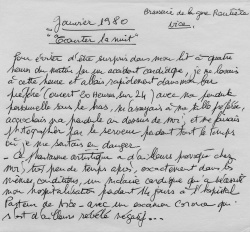 Brasserie de la gare Routière
Janvier 1980 Nice.
"Ecouter la nuit"
Pour éviter d'être surpris dans mon lit à quatre
heures du matin par un accident cardiaque, je me levais
à cette heure et allais rapidement dans mon bar
préféré (ouvert 20 heures sur 24) avec ma pendule
personnelle sous le bras, m'asseyais à ma table préférée,
accrochais ma pendule au dessus de moi, et me faisais
photographier par le serveur pendant tout le temps
où je me sentais en danger.
- Ce phantasme artistique a d'ailleurs provoqué chez
moi, très peu de temps après, exactement dans les
mêmes conditions, un malaise cardiaque qui a nécessité
mon hospitalisation pendant 14 jours à l'hôpital
Pasteur de Nice - avec un examen corona qui
s'est d'ailleurs révélé négatif...